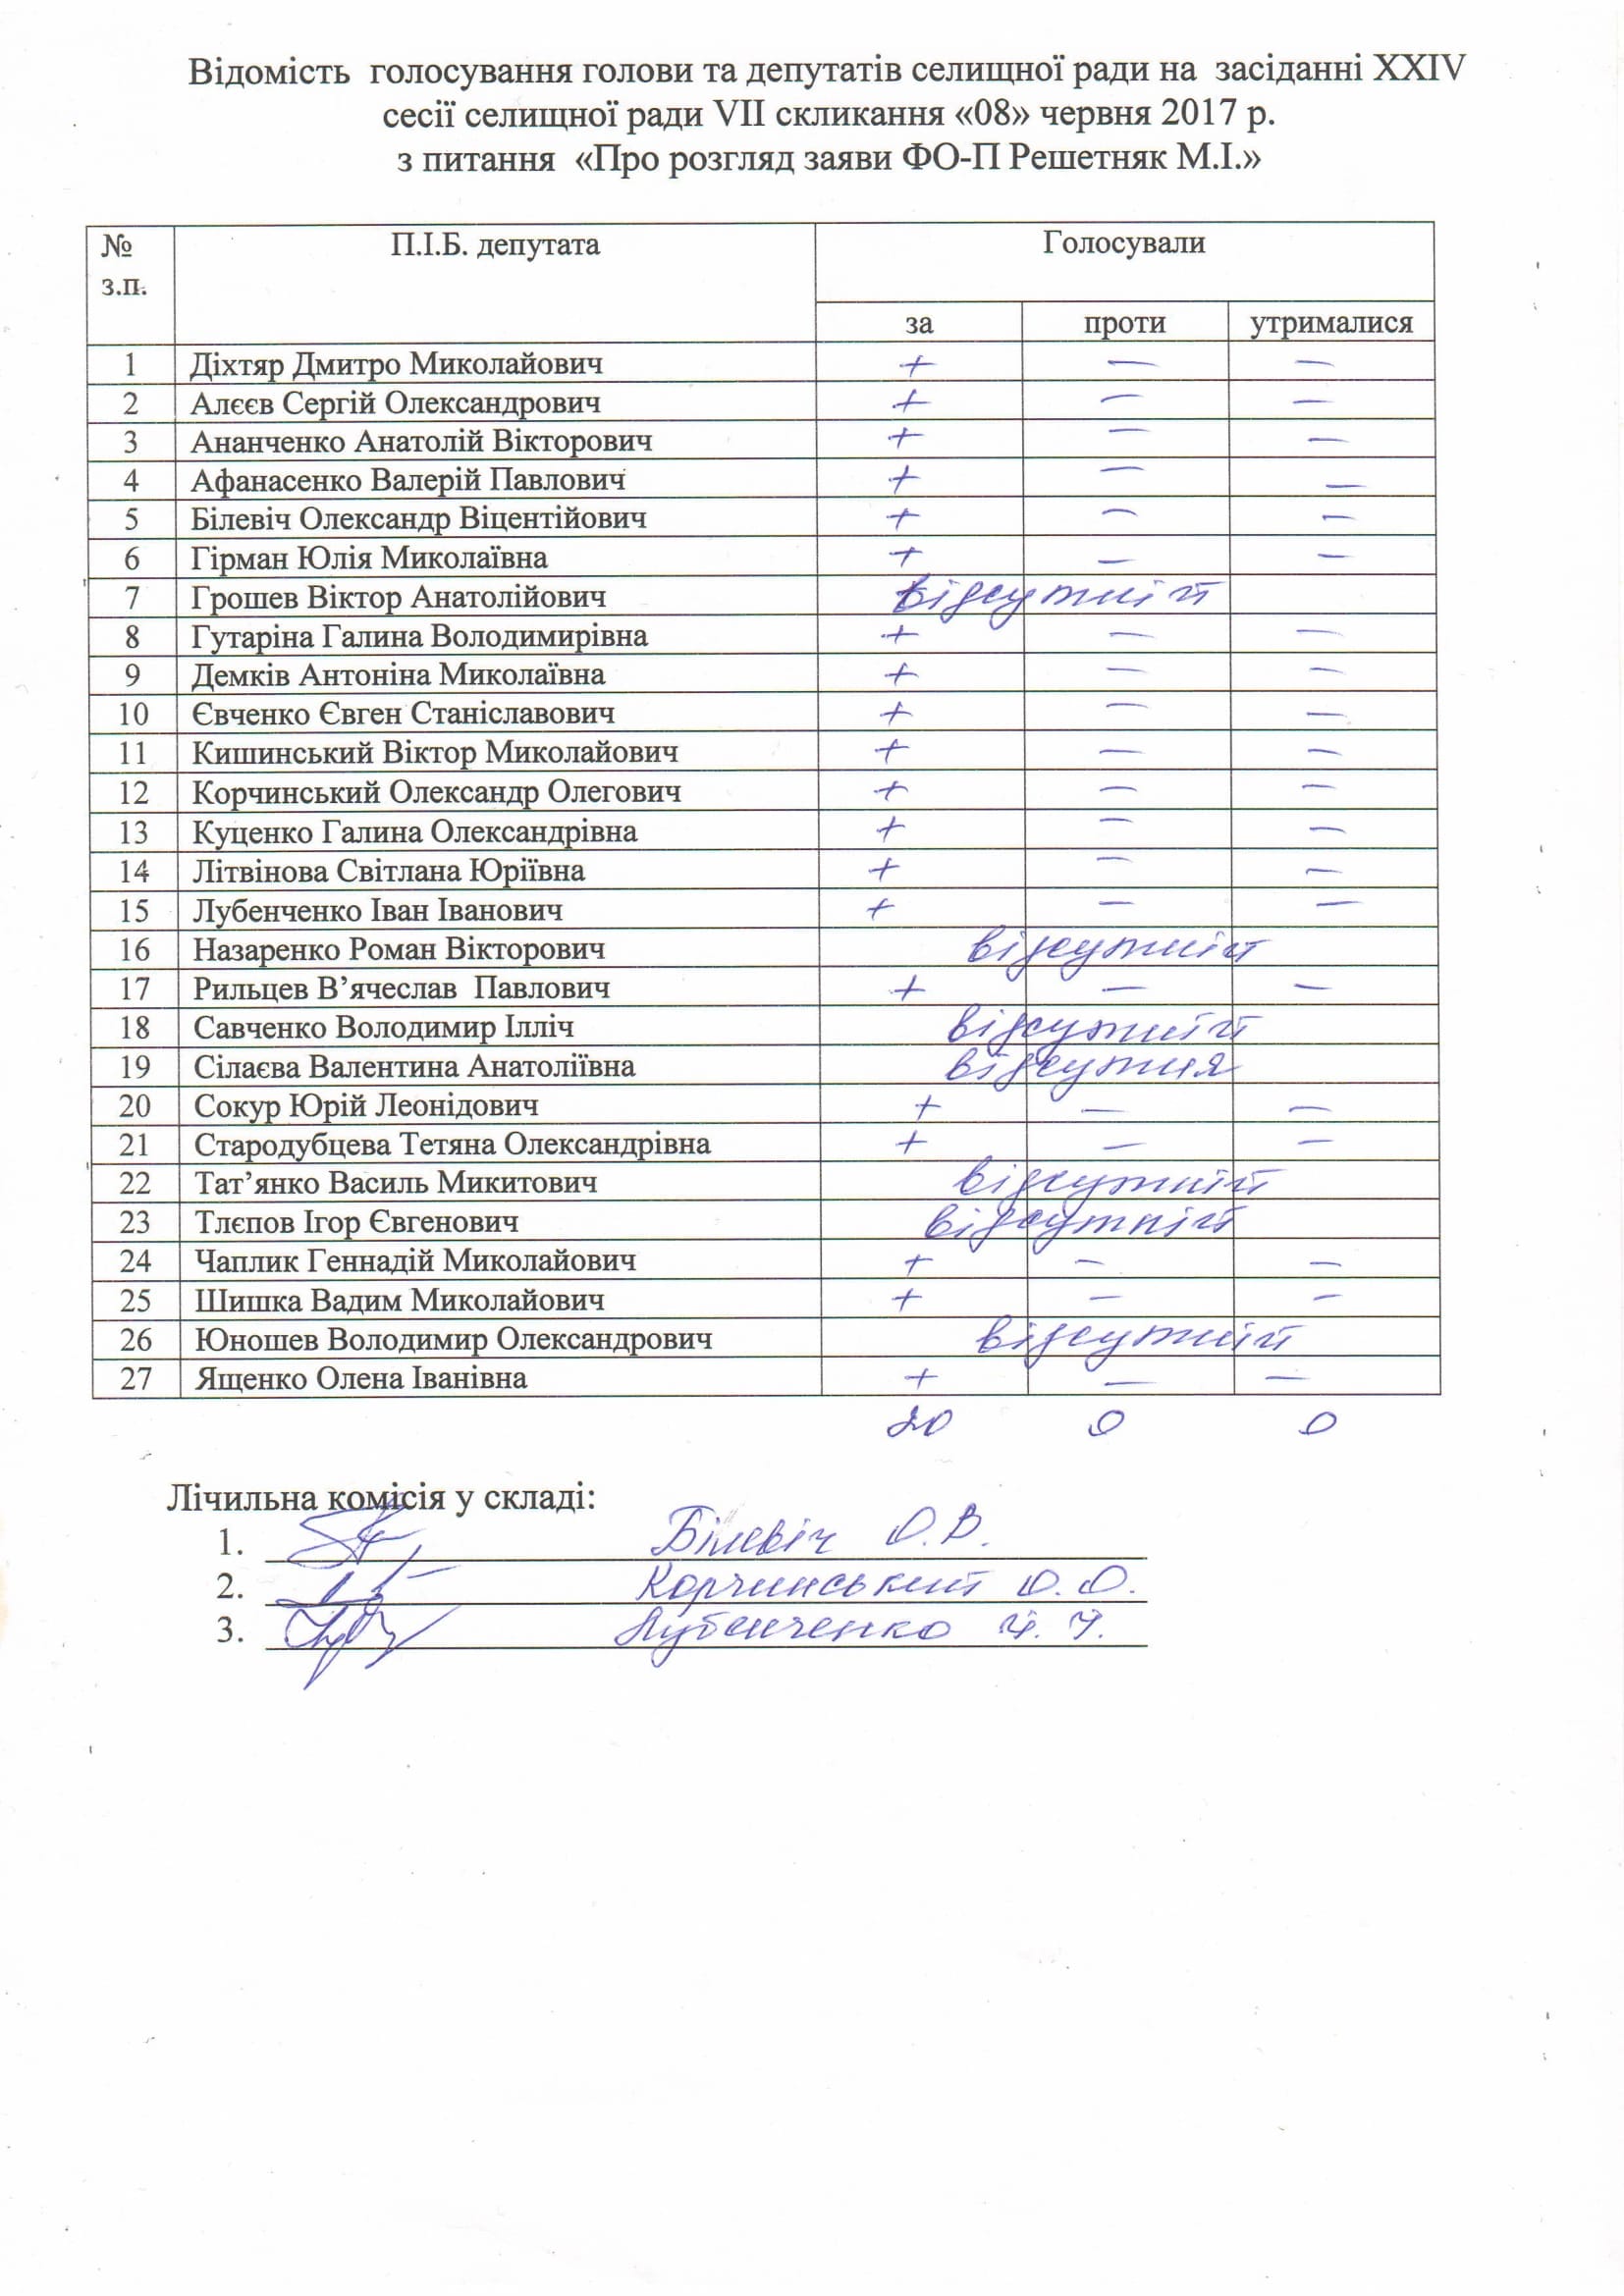 Відомість голосування голови та депутатів селищної ради на засіданні XXIV
сесії селищної ради VII скликання «08» червня 2017 р.
з питання «Про розгляд заяви ФО-П Решетняк М.І.»
№ з.п. П.І.Б. депутата Голосували
за проти утрималися
1 Діхтяр Дмитро Миколайович + — —
2 Алєєв Сергій Олександрович + — —
3 Ананченко Анатолій Вікторович + — —
4 Афанасенко Валерій Павлович + — —
5 Білевіч Олександр Віцентійович + — —
6 Гірман Юлія Миколаївна + — —
7 Грошев Віктор Анатолійович відсутній
8 Гутаріна Галина Володимирівна + — —
9 Демків Антоніна Миколаївна + — —
10 Євченко Євген Станіславович + — —
11 Кишинський Віктор Миколайович + — —
12 Корчинський Олександр Олегович + — —
13 Куценко Галина Олександрівна + — —
14 Літвінова Світлана Юріївна + — —
15 Лубенченко Іван Іванович + — —
16 Назаренко Роман Вікторович відсутній
17 Рильцев В’ячеслав Павлович + — —
18 Савченко Володимир Ілліч відсутній
19 Сілаєва Валентина Анатоліївна відсутня
20 Сокур Юрій Леонідович + — —
21 Стародубцева Тетяна Олександрівна + — —
22 Тат’янко Василь Микитович відсутній
23 Тлєпов Ігор Євгенович відсутній
24 Чаплик Геннадій Миколайович + — —
25 Шишка Вадим Миколайович + — —
26 Юношев Володимир Олександрович відсутній
27 Ященко Олена Іванівна + — —
20 0 0
Лічильна комісія у складі:
1. Білевіч О.В.
2. Корчинський О.О.
3. Лубенченко І.І.